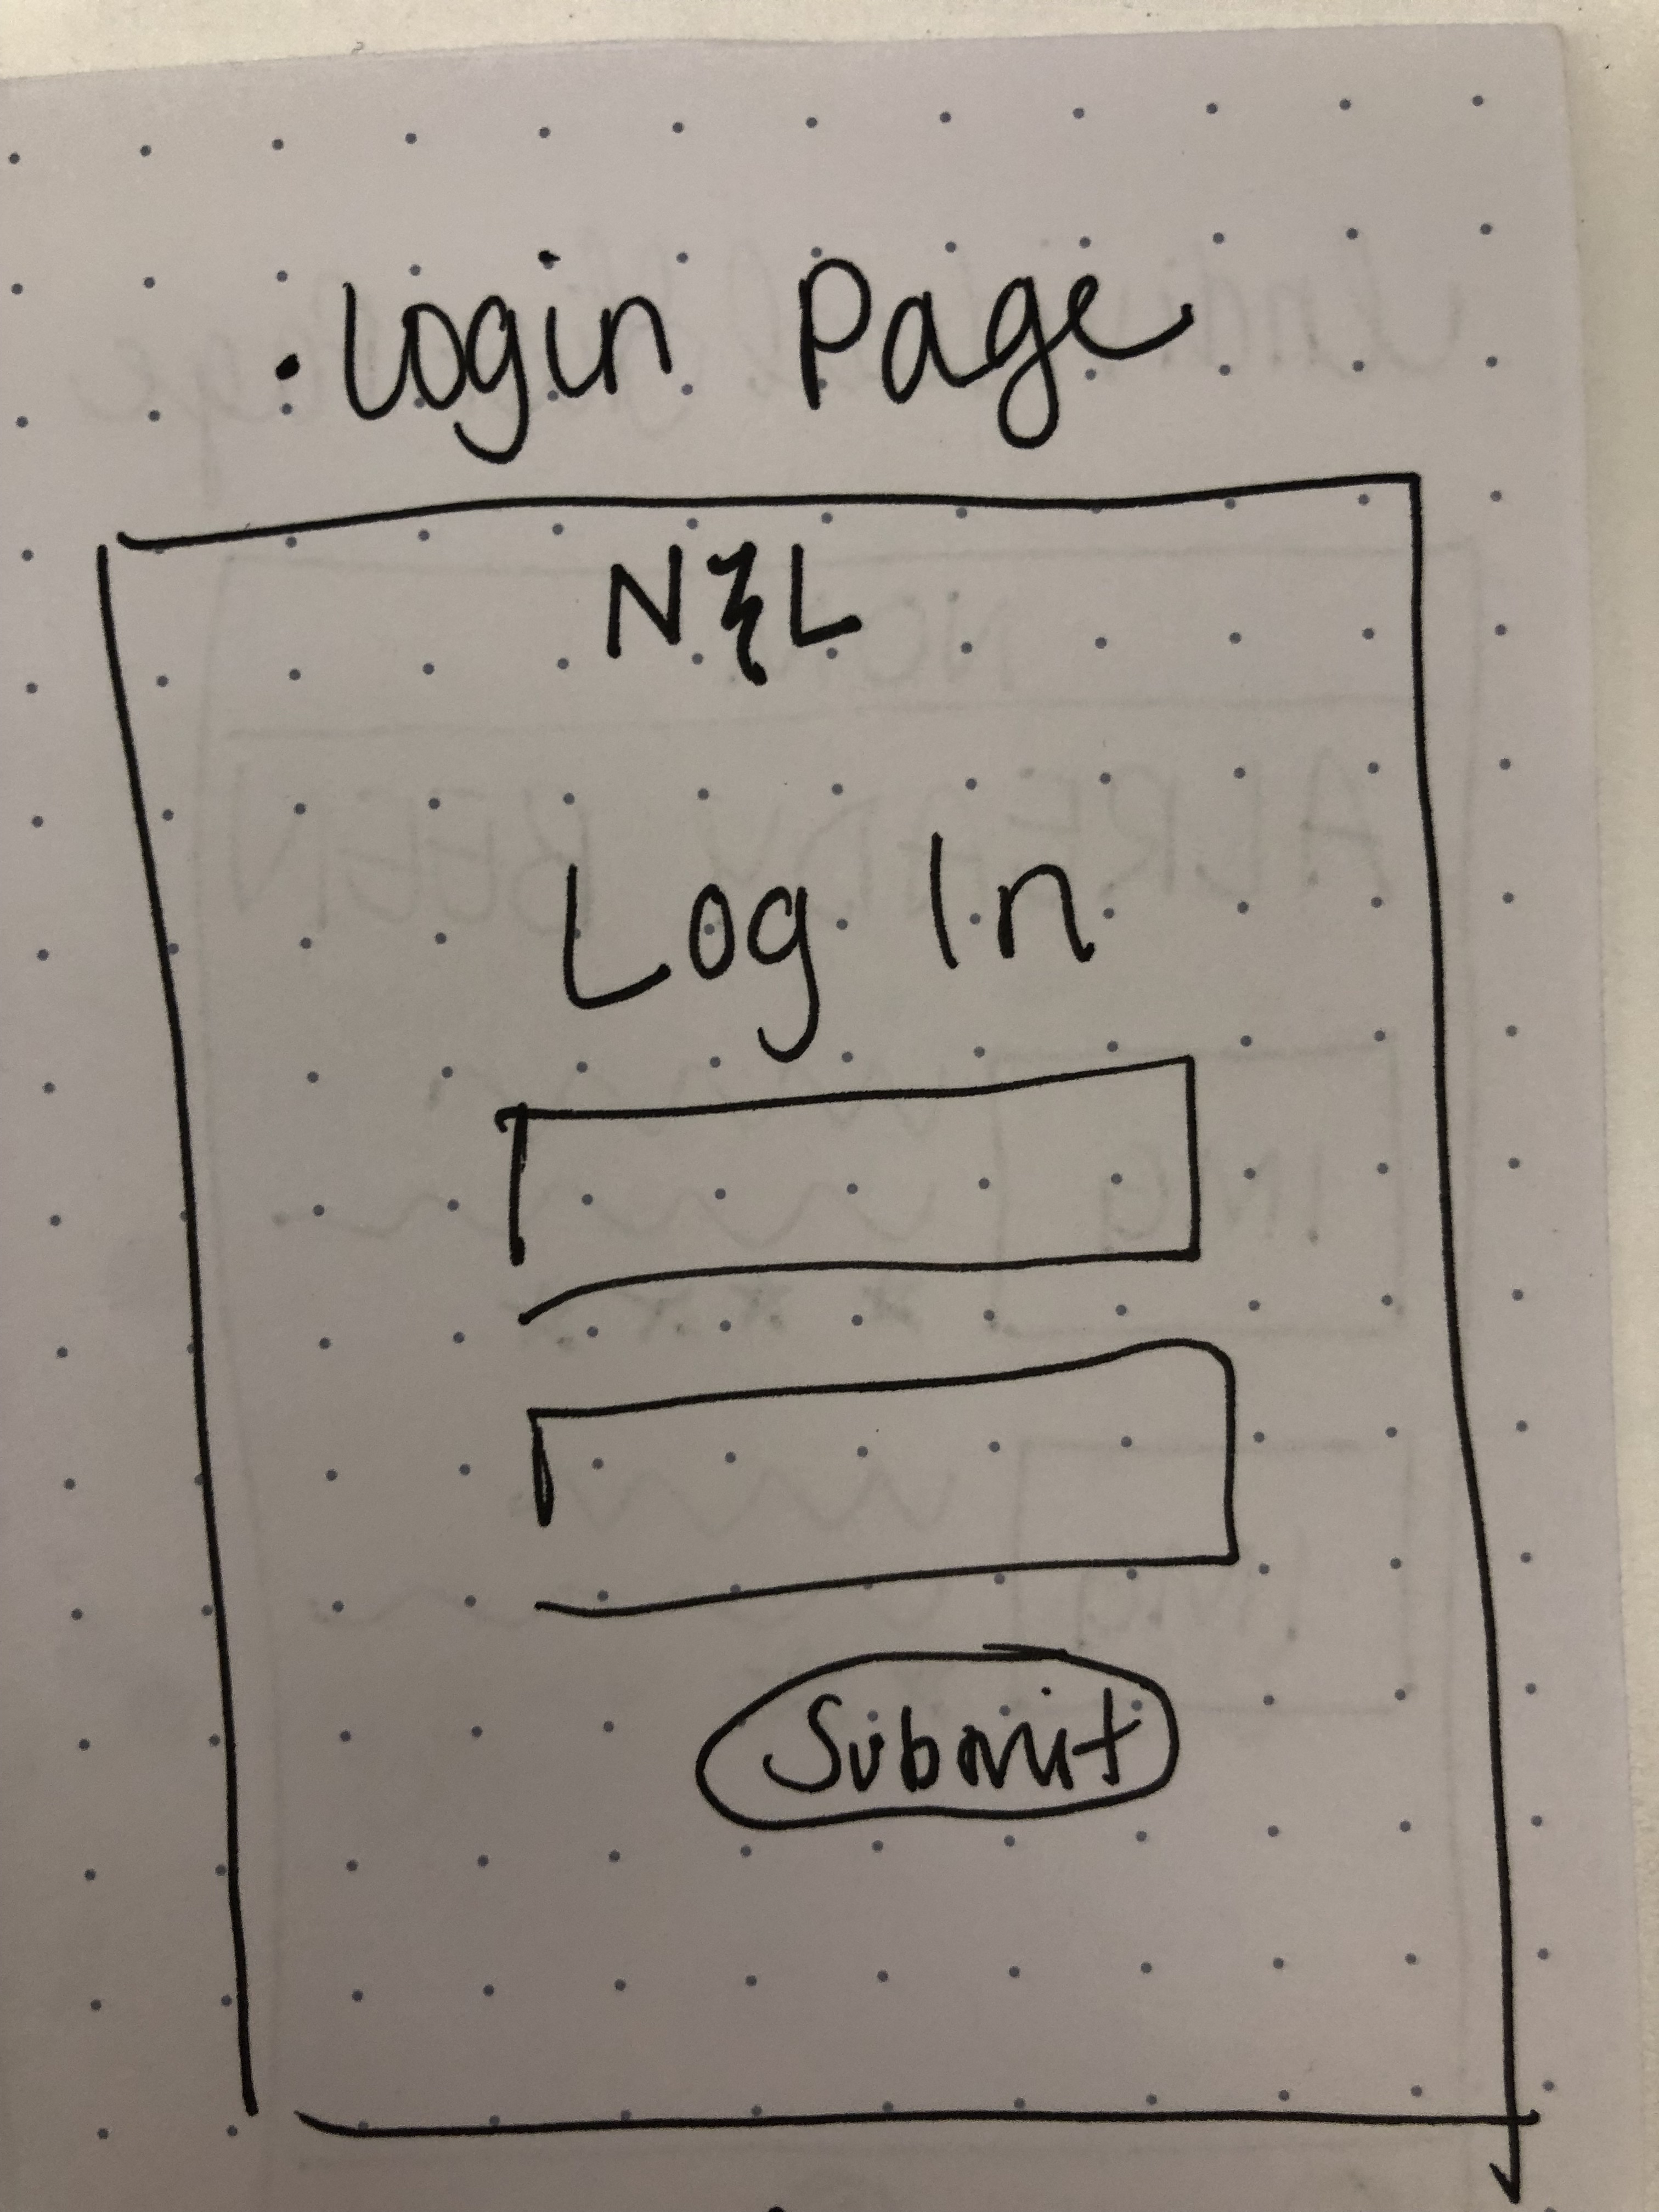 · Login Page
N&L
Log In
Submit